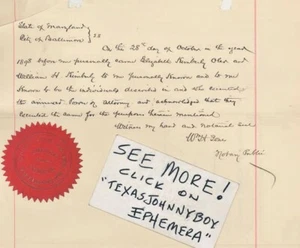 State of Maryland
City of Baltimore } SS
On the 28th day of October in the year
1898 before me personally came Elizabeth Kimberly and
William H. Kimberly to me personally known and to me
known to be the individuals described in and who executed
the annexed Power of Attorney and acknowledged that they
executed the same for the purposes therein mentioned
Witness my hand and Notarial Seal
Wm H
Notary Public
SEE MORE!
CLICK ON
"TEXASJOHNNYBOY
EPHEMERA"